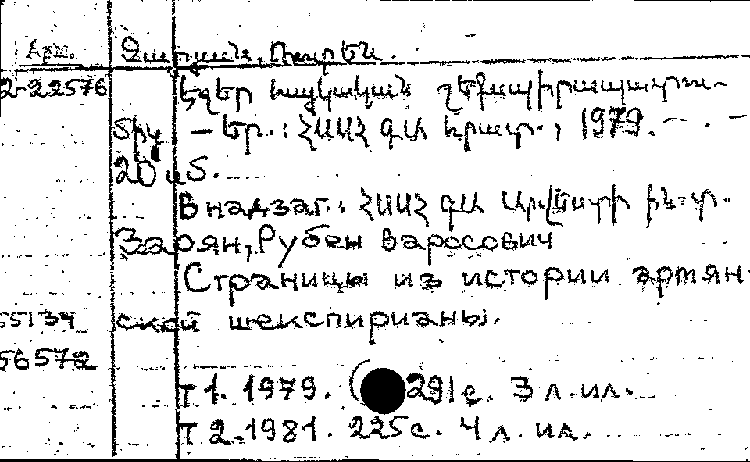 Арм. Զարյան, Ռուբեն.
2-22576 Էջեր հայկական շեքսպիրապատու-
մից — Եր.: ՀՍՍՀ ԳԱ հրատ., 1979. — . —
20 см.
В надзаг.: ՀՍՍՀ ԳԱ Արվեստի ին-տ.
Зарян, Рубен Варосович
Страницы из истории армян-
55134 ской шекспирианы.
56572
т 1. 1979. 291 с. 3 л. ил.
т 2. 1981. 225 с. 4 л. ил.